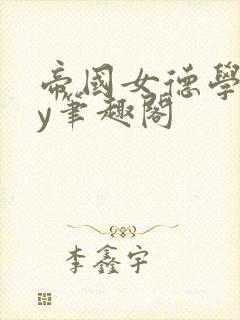 帝國女德學
y筆趣閣
李鑫宇